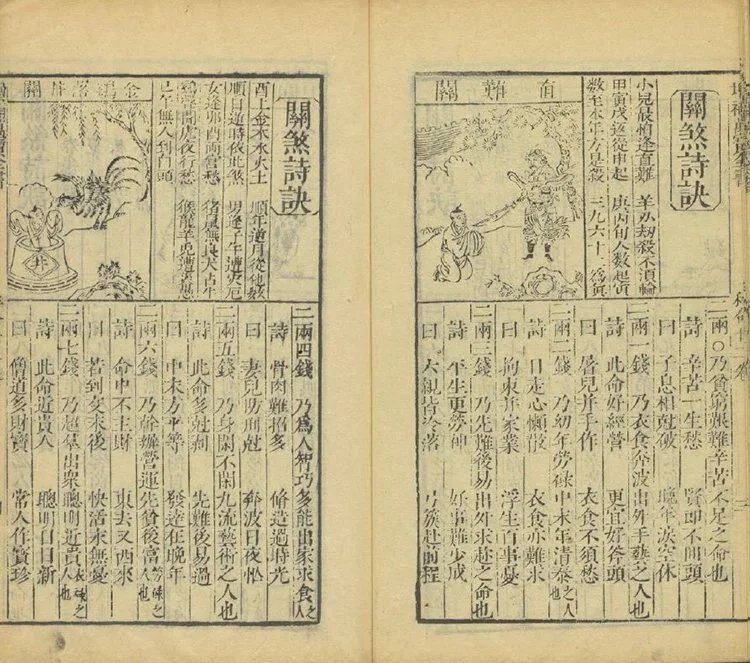 關煞詩訣
小兒最怕逢直難　羊刃劫殺不須輪
甲寅戌遊從申起　庚丙旬人數起寅
數至本年方是殺　三九六十二為寅
直難關
二兩〇乃貧窮艱難辛苦不足之命也
詩　辛苦一生愁　賢即不開頭
曰　子息相尅破　晚年淚空休
二兩一錢　乃衣食奔波出外手藝之人也
詩　此命好經營　更宜好斧頭
曰　唇兒并手作　衣食不須愁
二兩二錢　乃幼年勞碌中末年清泰之人也
詩　日走心懶散　衣食亦難求
曰　拘束并家業　浮生百事憂
二兩三錢　乃先難後易出外求趁之人也
詩　平生更勞神　好事難少成
曰　六親皆冷落　弓簇赴前程
關煞詩訣
酉上金木水火土　順年逆月從
順日逆時依此煞　男逢子午遭災厄
女逢卯酉兩宮愁　猪鼠無良犬占牛
馬騎間虎夜行愁　猴龍羊兔遭
巳午無人到白頭
金鷄落井關
井
二兩四錢　乃為人智巧多能出家求食之人
詩　骨肉難招多　脩造過時光
曰　妻兒防兩尅　奔波日夜忙
二兩五錢　乃身閑不閑九流藝術之人也
詩　此命多尅剥　先難後易過
曰　中末方平等　發達在晚年
二兩六錢　乃幹辦營運先貧後富勞碌之人也
詩　命中不主財　東去又西來
曰　若到交末後　快活永無憂
二兩七錢　乃超羣出衆聰明近貴人衣碌之也
詩　此命近貴人　聰明日日新
曰　僧道多財寶　常人作寶珍